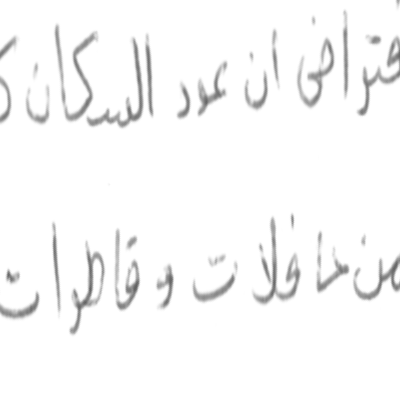 فتراضى ان عود السكان
من حافلات و قاطرات